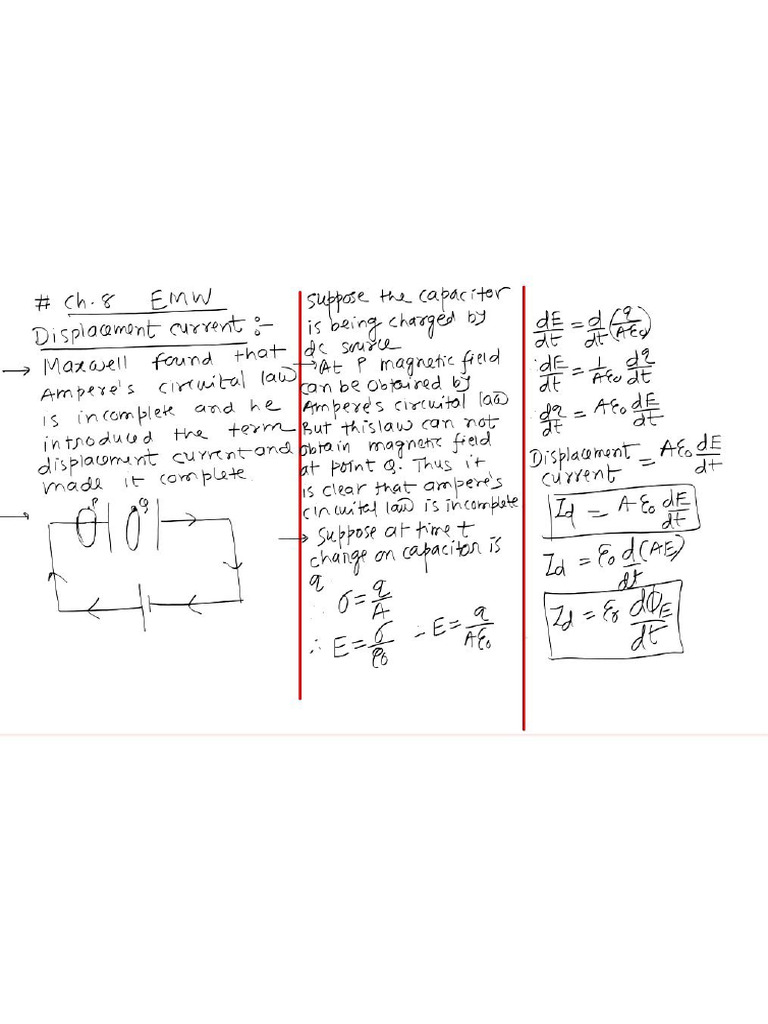 # Ch.8 EMW
Displacement current :-
→ Maxwell found that
Ampere's circuital law
is incomplete and he
introduced the term
displacement current and
made it complete.
→ P Q
Suppose the capacitor
is being charged by
dc source
→ At P magnetic field
can be obtained by
Ampere's circuital law
But this law can not
obtain magnetic field
at point Q. Thus it
is clear that ampere's
circuital law is incomplete
→ Suppose at time t
change on capacitor is
q
σ = q/A
∴ E = σ/ε0 ∴ E = q/Aε0
dE/dt = d/dt (q/Aε0)
dE/dt = 1/Aε0 dq/dt
dq/dt = Aε0 dE/dt
Displacement current = Aε0 dE/dt
Id = Aε0 dE/dt
Id = ε0 d(AE)/dt
Id = ε0 dΦE/dt